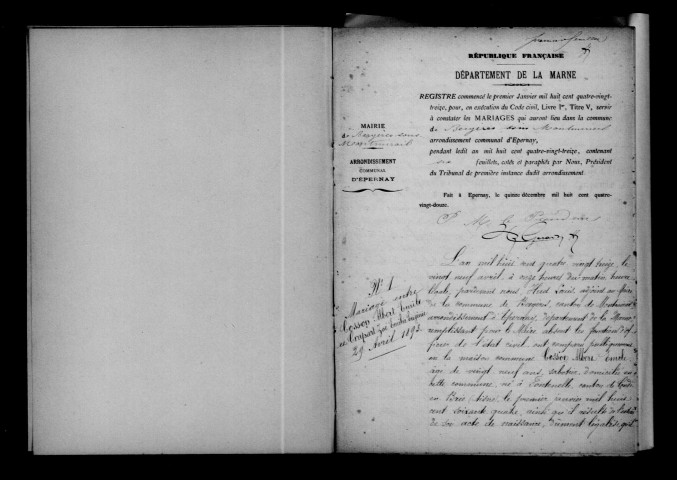 RÉPUBLIQUE FRANÇAISE
DÉPARTEMENT DE LA MARNE
REGISTRE commencé le premier Janvier mil huit cent quatre-vingt-
treize, pour, en exécution du Code civil, Livre Ier, Titre V, servir
à constater les MARIAGES qui auront lieu dans la commune
de Bergères sous Montmirail
arrondissement communal d'Epernay,
pendant ledit an mil huit cent quatre-vingt-treize, contenant
six feuillets, cotés et paraphés par Nous, Président
du Tribunal de première instance dudit arrondissement.
Fait à Epernay, le quinze décembre mil huit cent quatre-
vingt-douze.
MAIRIE
de Bergères sous
Montmirail
ARRONDISSEMENT
COMMUNAL
D'ÉPERNAY
N° 1
Mariage entre
Cosson Albert Emile
et
29 Avril 1893
L'an mil huit cent quatre vingt treize, le
vingt neuf avril, à onze heures du matin
pardevant nous Huet Louis, adjoint au Maire
de la commune de Bergères, canton de Montmirail
arrondissement d'Epernay, département de la Marne,
remplissant pour le Maire absent les fonctions d'of
ficier de l'état civil, ont comparu publiquement
en la maison commune Cosson Albert Emile
âgé de vingt neuf ans, sabotier, domicilié en
cette commune, né à Fontenelle, canton de Condé
en Brie (Aisne) le premier janvier mil huit
cent soixante quatre, ainsi qu'il résulte de l'extrait
de son acte de naissance, dûment légalisé